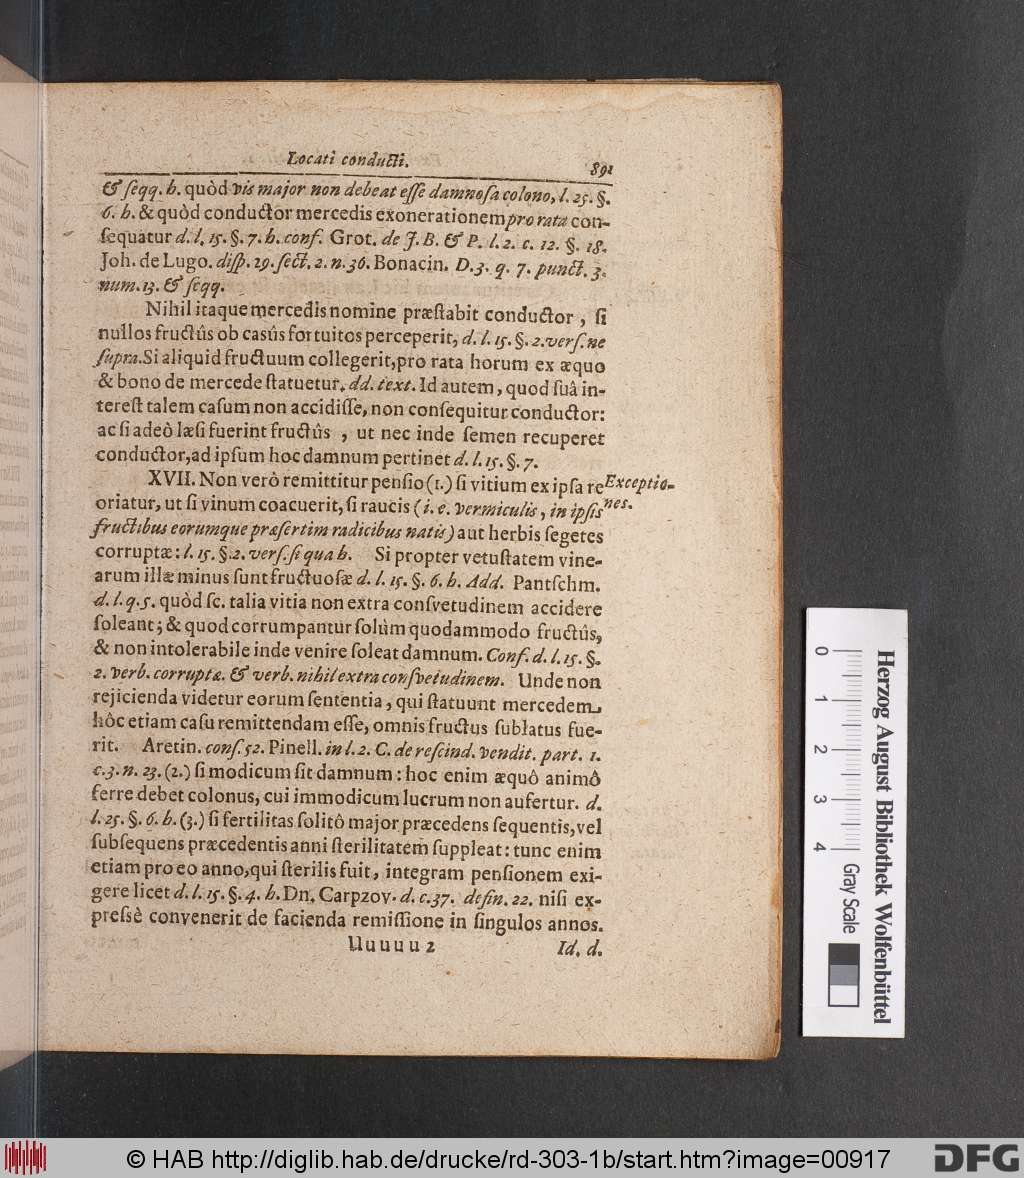 Locati conducti. 891
& ſeqq. h. quòd vis major non debeat eſſe damnoſa colono, l. 25. §.
6. h. & quòd conductor mercedis exonerationem pro rata con-
ſequatur d. l. 15. §. 7. h. conf. Grot. de J. B. & P. l. 2. c. 12. §. 18.
Joh. de Lugo. diſp. 29. ſect. 2. n. 36. Bonacin. D. 3. q. 7. punct. 3.
num. 13. & ſeqq.
Nihil itaque mercedis nomine præſtabit conductor, ſi
nullos fructûs ob casûs fortuitos perceperit, d. l. 15. §. 2. verſ. ne
ſupra. Si aliquid fructuum collegerit, pro rata horum ex æquo
& bono de mercede ſtatuetur. dd. text. Id autem, quod ſuâ in-
tereſt talem caſum non accidiſſe, non conſequitur conductor:
ac ſi adeò læſi fuerint fructûs, ut nec inde ſemen recuperet
conductor, ad ipſum hoc damnum pertinet d. l. 15. §. 7.
XVII. Non verò remittitur penſio (1.) ſi vitium ex ipſa re Exceptio-
oriatur, ut ſi vinum coacuerit, ſi raucis (i. e. vermiculis, in ipſis nes.
fructibus eorumque præſertim radicibus natis) aut herbis ſegetes
corruptæ: l. 15. §. 2. verſ. ſi qua h. Si propter vetuſtatem vine-
arum illæ minus ſunt fructuoſæ d. l. 15. §. 6. h. Add. Pantſchm.
d. l. q. 5. quòd ſc. talia vitia non extra conſvetudinem accidere
ſoleant; & quod corrumpantur ſolùm quodammodo fructûs,
& non intolerabile inde venire ſoleat damnum. Conf. d. l. 15. §.
2. verb. corruptæ. & verb. nihil extra conſvetudinem. Unde non
rejicienda videtur eorum ſententia, qui ſtatuunt mercedem
hôc etiam caſu remittendam eſſe, omnis fructus ſublatus fue-
rit. Aretin. conſ. 52. Pinell. in l. 2. C. de reſcind. vendit. part. 1.
c. 3. n. 23. (2.) ſi modicum ſit damnum: hoc enim æquô animô
ferre debet colonus, cui immodicum lucrum non aufertur. d.
l. 25. §. 6. h. (3.) ſi fertilitas ſolitô major præcedens ſequentis, vel
ſubſequens præcedentis anni ſterilitatem ſuppleat: tunc enim
etiam pro eo anno, qui ſterilis fuit, integram penſionem exi-
gere licet d. l. 15. §. 4. h. Dn. Carpzov. d. c. 37. defin. 22. niſi ex-
preſsè convenerit de facienda remiſſione in ſingulos annos.
Uuuuu 2 Id. d.
0 1 2 3 4
Gray Scale
Herzog August Bibliothek Wolfenbüttel
© HAB http://diglib.hab.de/drucke/rd-303-1b/start.htm?image=00917
DFG